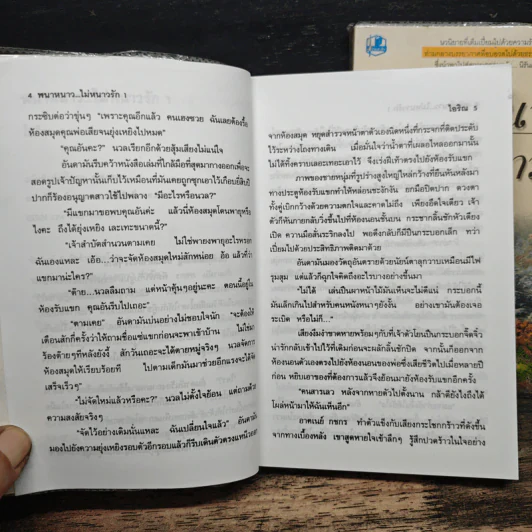 4 พนาหนาว...ไม่หนาวรัก 1
กระซิบต่อว่าขุ่นๆ "เพราะคุณอีกแล้ว คนเฮงซวย ฉันเลยต้องรื้อ
ห้องสมุดคุณพ่อเสียจนยุ่งเหยิงไปหมด"
"คุณอันตะ?" นวลเรียกอีกด้วยสุ้มเสียงไม่แน่ใจ
อันตามันรีบคว้าหนังสือเล่มที่ใกล้มือที่สุดมากางออกเพื่อจะ
ปากก็ร้องอนุญาตสาวใช้ไปพลาง "มีอะไรหรือนวล?"
"มีแขกมาขอพบคุณอันค่ะ แล้วนี่ห้องสมุดโดนพายุหรือ
ไงคะ ถึงได้ยุ่งเหยิง เละเทะขนาดนี้?"
"เจ้าสำบัดสำนวนตามเคย ไม่ใช่พายุพายุอะไรหรอก
ฉันเองแหละ เอ้อ...ว่าจะจัดห้องสมุดใหม่สักหน่อย อ้อ แล้วที่ว่า
แขกมาน่ะใคร?"
"ต๊าย...นวลลืมถาม แต่หน้าคุ้นๆอยู่นะคะ ตอนนี้อยู่ใน
ห้องรับแขก คุณอันรีบไปเถอะ"
"ตามเคย" อันตามันบ่นอย่างไม่ชอบใจนัก "จะต้องให้
เตือนสักกี่ครั้งว่าให้ถามชื่อแซ่แขกก่อนจะพาเข้าบ้าน ไม่ใช่มา
ร้องต๊ายๆทีหลังยังงี้ สักวันเถอะจะได้ตายหมู่จริงๆ นวลจัดการ
ห้องสมุดให้เรียบร้อยที ไปตามเด็กมันมาช่วยอีกแรงจะได้จัด
เสร็จเร็วๆ"
"ไม่จัดใหม่แล้วหรือคะ?" นวลไม่ตั้งใจย้อน แต่ถามด้วย
ความสงสัยจริงๆ
"จัดไว้อย่างเดิมนั่นแหละ ฉันเปลี่ยนใจแล้ว"
มองไปยังความยุ่งเหยิงรอบตัวอีกรอบแล้วก็รีบเดินตัวตรง
โสริณ 5
จากห้องสมุด หยุดสำรวจหน้าตาตัวเองนิดหนึ่งที่กระจกที่ติดประดับ
ไว้ระหว่างโถงทางเดิน เมื่อมั่นใจว่าน้ำตาที่เผลอไหลออกมานั้น
ไม่ได้ทิ้งคราบเลอะเทอะเอาไว้ จึงเร่งฝีเท้าตรงไปยังห้องรับแขก
ภาพของชายหนุ่มที่รูปร่างสูงใหญ่ไหล่กว้างที่ยืนหันหลังมา
ทางประตูห้องรับแขกทำให้หล่อนชะงักงัน ยกมือปิดปาก ดวงตา
ทั้งคู่เบิกกว้างด้วยความตกใจและคาดไม่ถึง เพียงอึดใจเดียว เจ้า
ตัวก็หันกายกลับวิ่งขึ้นไปที่ห้องนอนชั้นบน กระชากลิ้นชักหัวเตียง
เปิด ควานมือสั่นระริกลงไป พอดึงกลับก็มีปืนกระบอกเล็ก ทว่า
เปี่ยมไปด้วยประสิทธิภาพติดมาด้วย
อันตามันมองวัตถุอันตรายด้วยนัยน์ตาลุกวาวเหมือนมีไฟ
รุมสุม แต่แล้วก็ฉุกใจคิดถึงอะไรบางอย่างขึ้นมา
"ไม่ได้ เล่นปืนผาหน้าไม้มันเห็นจะไม่ดีแน่ กระบอกนี้
มันเล็กเกินไปสำหรับคนหนังหนาๆยังงั้น อย่างเขามันต้องเจอ
ระเบิด หรือไม่ก็..."
เสียงงึมงำขาดหายพร้อมๆกับที่เจ้าตัวโยนปืนกระบอกจิ๊ดจิ๋ว
น่ารักกลับเข้าไปไว้ที่เดิมก่อนจะผลักลิ้นชักปิด จากนั้นก็ออกจาก
ห้องนอนตัวเองตรงไปยังห้องนอนของพ่อซึ่งเสียชีวิตไปเมื่อหลายปี
ก่อน หยิบเอาของที่ต้องการแล้วจึงย้อนมายังห้องรับแขกอีกครั้ง
"คนสารเลว หลังจากหายหัวไปตั้งนาน กล้าดียังไงถึงได้
โผล่หน้ามาให้ฉันเห็นอีก"
อาคเนย์ ภชกร ทำตัวแข็งกับเสียงกระโชกกร้าวที่ดังขึ้น
จากทางเบื้องหลัง เขาสูดหายใจเข้าลึกๆ รู้สึกปวดร้าวในใจอย่าง